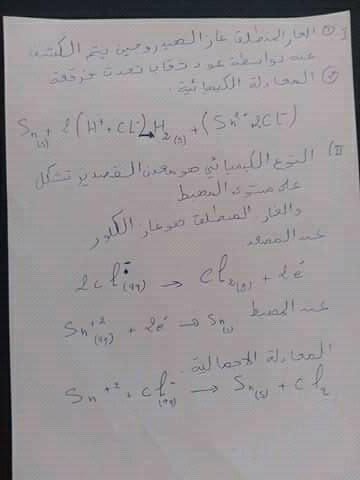 I) ① الغاز المنطلق غاز الهيدروجين يتم الكشف
عنه بواسطة عود ثقاب تحدث فرقعة
② المعادلة الكيميائية.
Sn(s) + 2(H⁺ + Cl⁻) → H₂(g) + (Sn²⁺ 2Cl⁻)
II) النوع الكيميائي هو معدن القصدير تشكل
على مستوى المهبط
والغاز المنطلق هو غاز الكلور
عند المصعد
2Cl⁻(aq) → Cl₂(g) + 2e⁻
عند المهبط
Sn⁺²(aq) + 2e⁻ → Sn(s)
المعادلة الاجمالية.
Sn⁺² + Cl⁻(aq) → Sn(s) + Cl₂